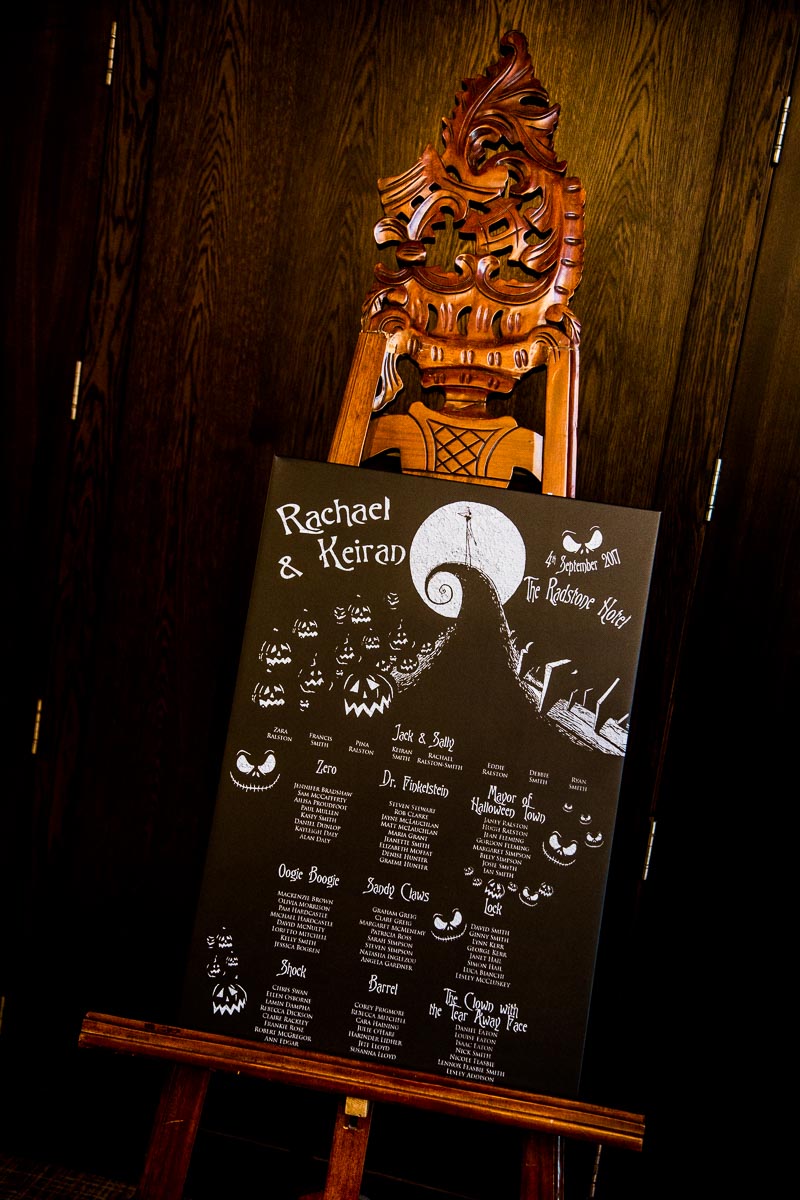 Rachael
& Keiran
4th September 2017
The Radstone Hotel
Jack & Sally
Zara
Ralston
Francis
Smith
Pina
Ralston
Keiran
Smith
Rachael
Ralston-Smith
Eddie
Ralston
Debbie
Smith
Ryan
Smith
Zero
Jennifer Bradshaw
Sam McCafferty
Ailisa Proudfoot
Paul Mullen
Kasey Smith
Daniel Dunlop
Kayleigh Daly
Alan Daly
Dr. Finkelstein
Steven Stewart
Rob Clarke
Jayne McLauchlan
Matt McLauchlan
Maria Grant
Jeanette Smith
Elizabeth Moffat
Denise Hunter
Graeme Hunter
Mayor of
Halloween Town
Janey Ralston
Hugh Ralston
Jean Fleming
Gordon Fleming
Margaret Simpson
Billy Simpson
Josie Smith
Ian Smith
Oogie Boogie
Mackenzie Brown
Olivia Morrison
Pam Hardcastle
Michael Hardcastle
David McNulty
Loretto Mitchell
Kelly Smith
Jessica Bogren
Sandy Claws
Graham Greig
Clare Greig
Margaret McMenemy
Patricia Ross
Sarah Simpson
Steven Simpson
Natasha Inglizou
Angela Gardner
Lock
David Smith
Ginny Smith
Lynn Kerr
George Kerr
Janet Hail
Simon Hail
Luca Bianchi
Lesley McCluskey
Shock
Chris Swan
Ellen Osborne
Lamin Dampha
Rebecca Dickson
Claire Rackley
Frankie Rose
Robert McGregor
Ann Edgar
Barrel
Corey Pragmore
Rebecca Mitchell
Cara Haining
Julie O'Hare
Harinder Lidher
Jete Lloyd
Susanna Lloyd
The Clown with
the Tear Away Face
Daniel Eaton
Louise Eaton
Isaac Eaton
Nick Smith
Nicole Feasbie
Lennox Feasbie Smith
Lesley Addison